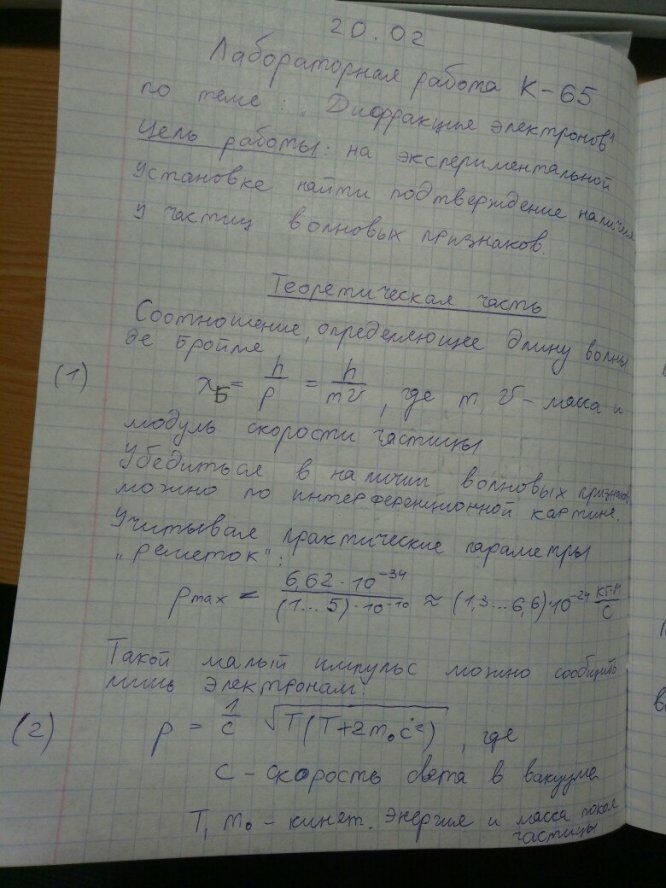 20.02
Лабораторная работа К-65
по теме: „Дифракция электронов"
Цель работы: на экспериментальной
установке найти подтверждение наличия
у частиц волновых признаков.
Теоретическая часть
Соотношение, определяющее длину волны
де Бройля
(1) λ_Б = h/p = h/mv, где m v - масса и
модуль скорости частицы
Убедиться в наличии волновых признаков
можно по интерференционной картине.
Учитывая практические параметры
„решеток":
p_max = 6,62·10^-34 / (1...5)·10^-10 ≈ (1,3...6,6)10^-24 кг·м/с
Такой малый импульс можно сообщить
лишь электронам:
(2) p = 1/c √(T(T+2m₀c²)), где
c - скорость света в вакууме
T, m₀ - кинет. энергия и масса покоя
частицы